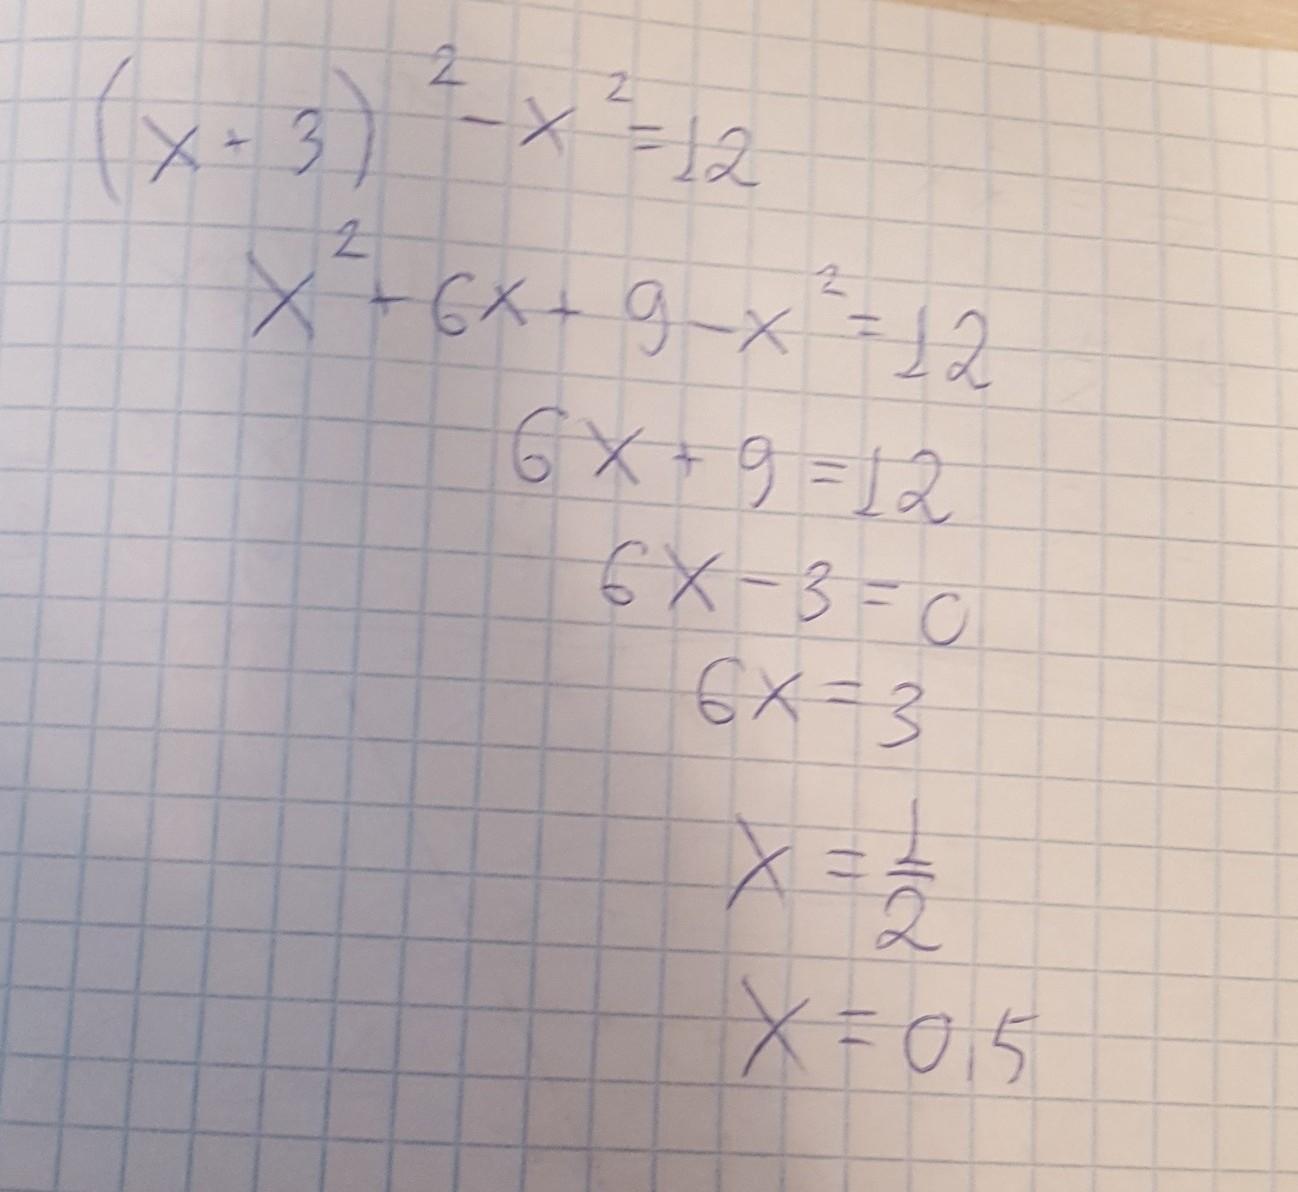 (x + 3)² - x² = 12
x² + 6x + 9 - x² = 12
6x + 9 = 12
6x - 3 = 0
6x = 3
x = 1/2
x = 0,5